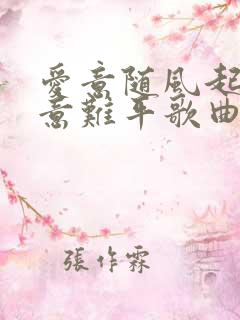 愛意随風起
意難平歌曲
張作霖